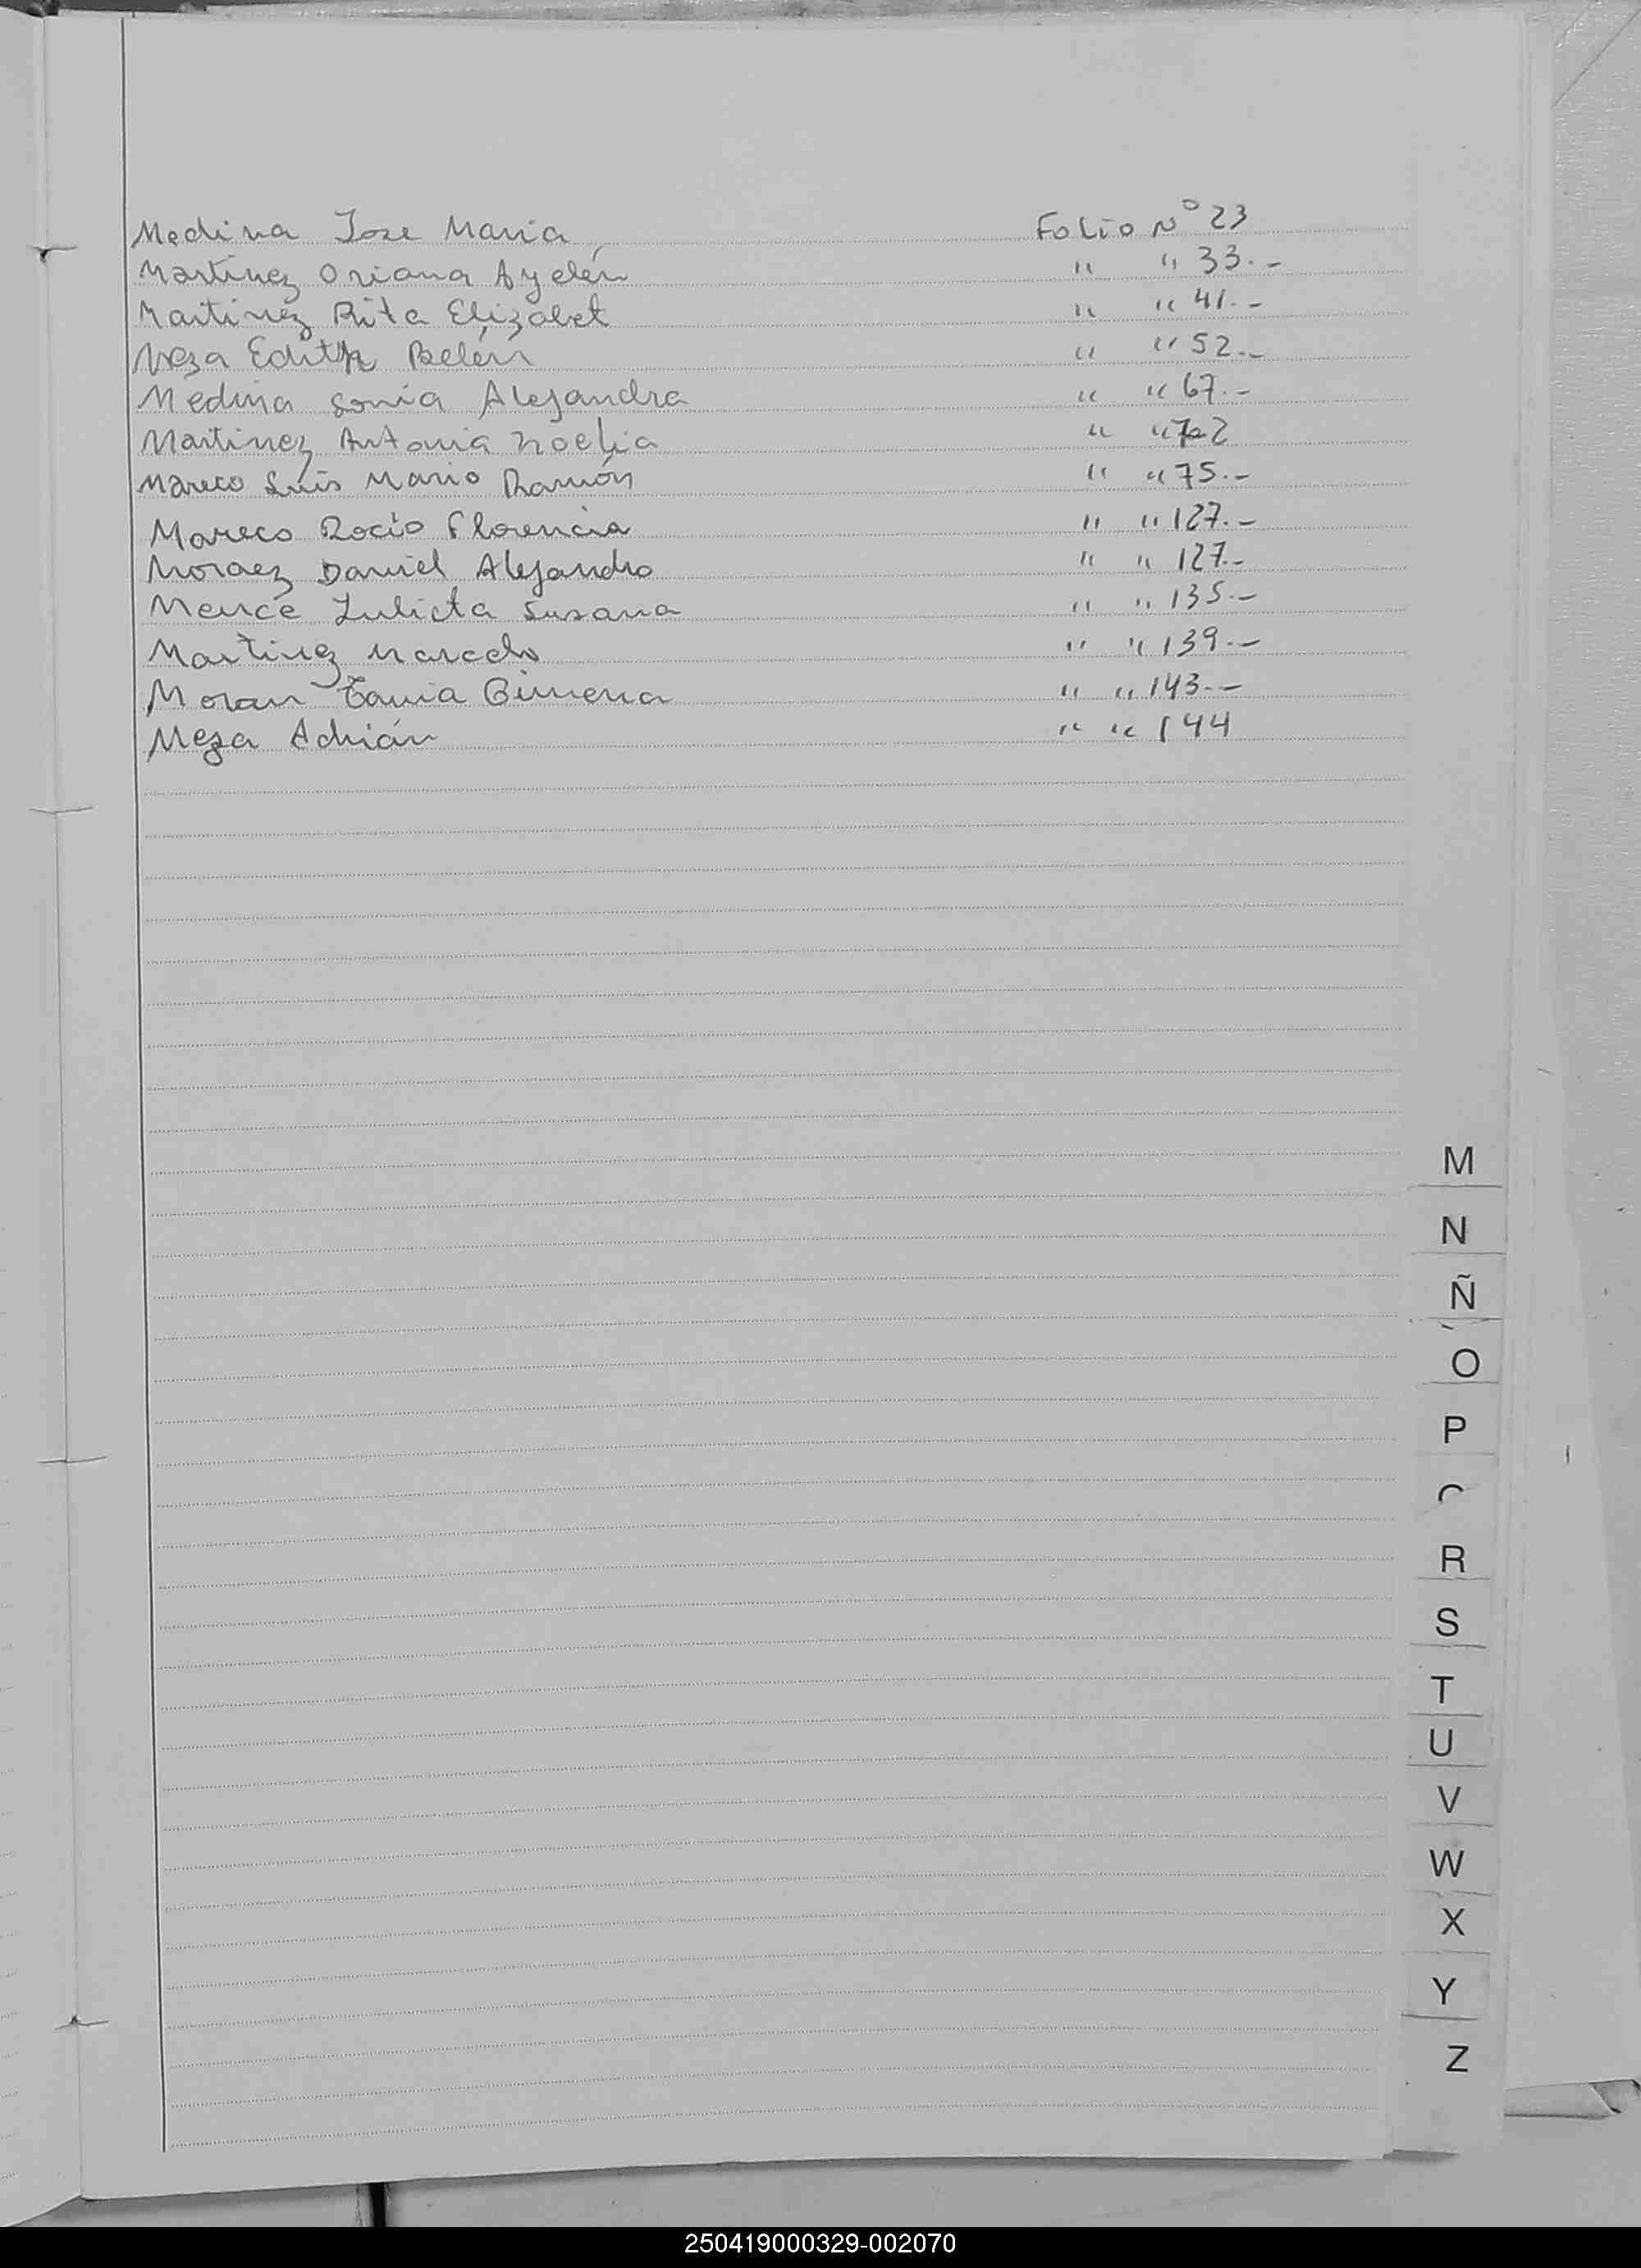 Medina Jose Maria Folio Nº 23
Martinez Oriana Ayelén " " 33.-
Martinez Rita Elizabet " " 41.-
Meza Edith Belén " " 52.-
Medina Sonia Alejandra " " 67.-
Martinez Antonia Noelia " " 72
Mareco Luis Mario Ramón " " 75.-
Mareco Rocio Florencia " " 127.-
Moraez Daniel Alejandro " " 127.-
Mencé Julieta Susana " " 135.-
Martinez Marcelo " " 139.-
Moran Tania Gimena " " 143.-
Meza Adrián " " 144
M
N
Ñ
O
P
R
S
T
U
V
W
X
Y
Z
250419000329-002070